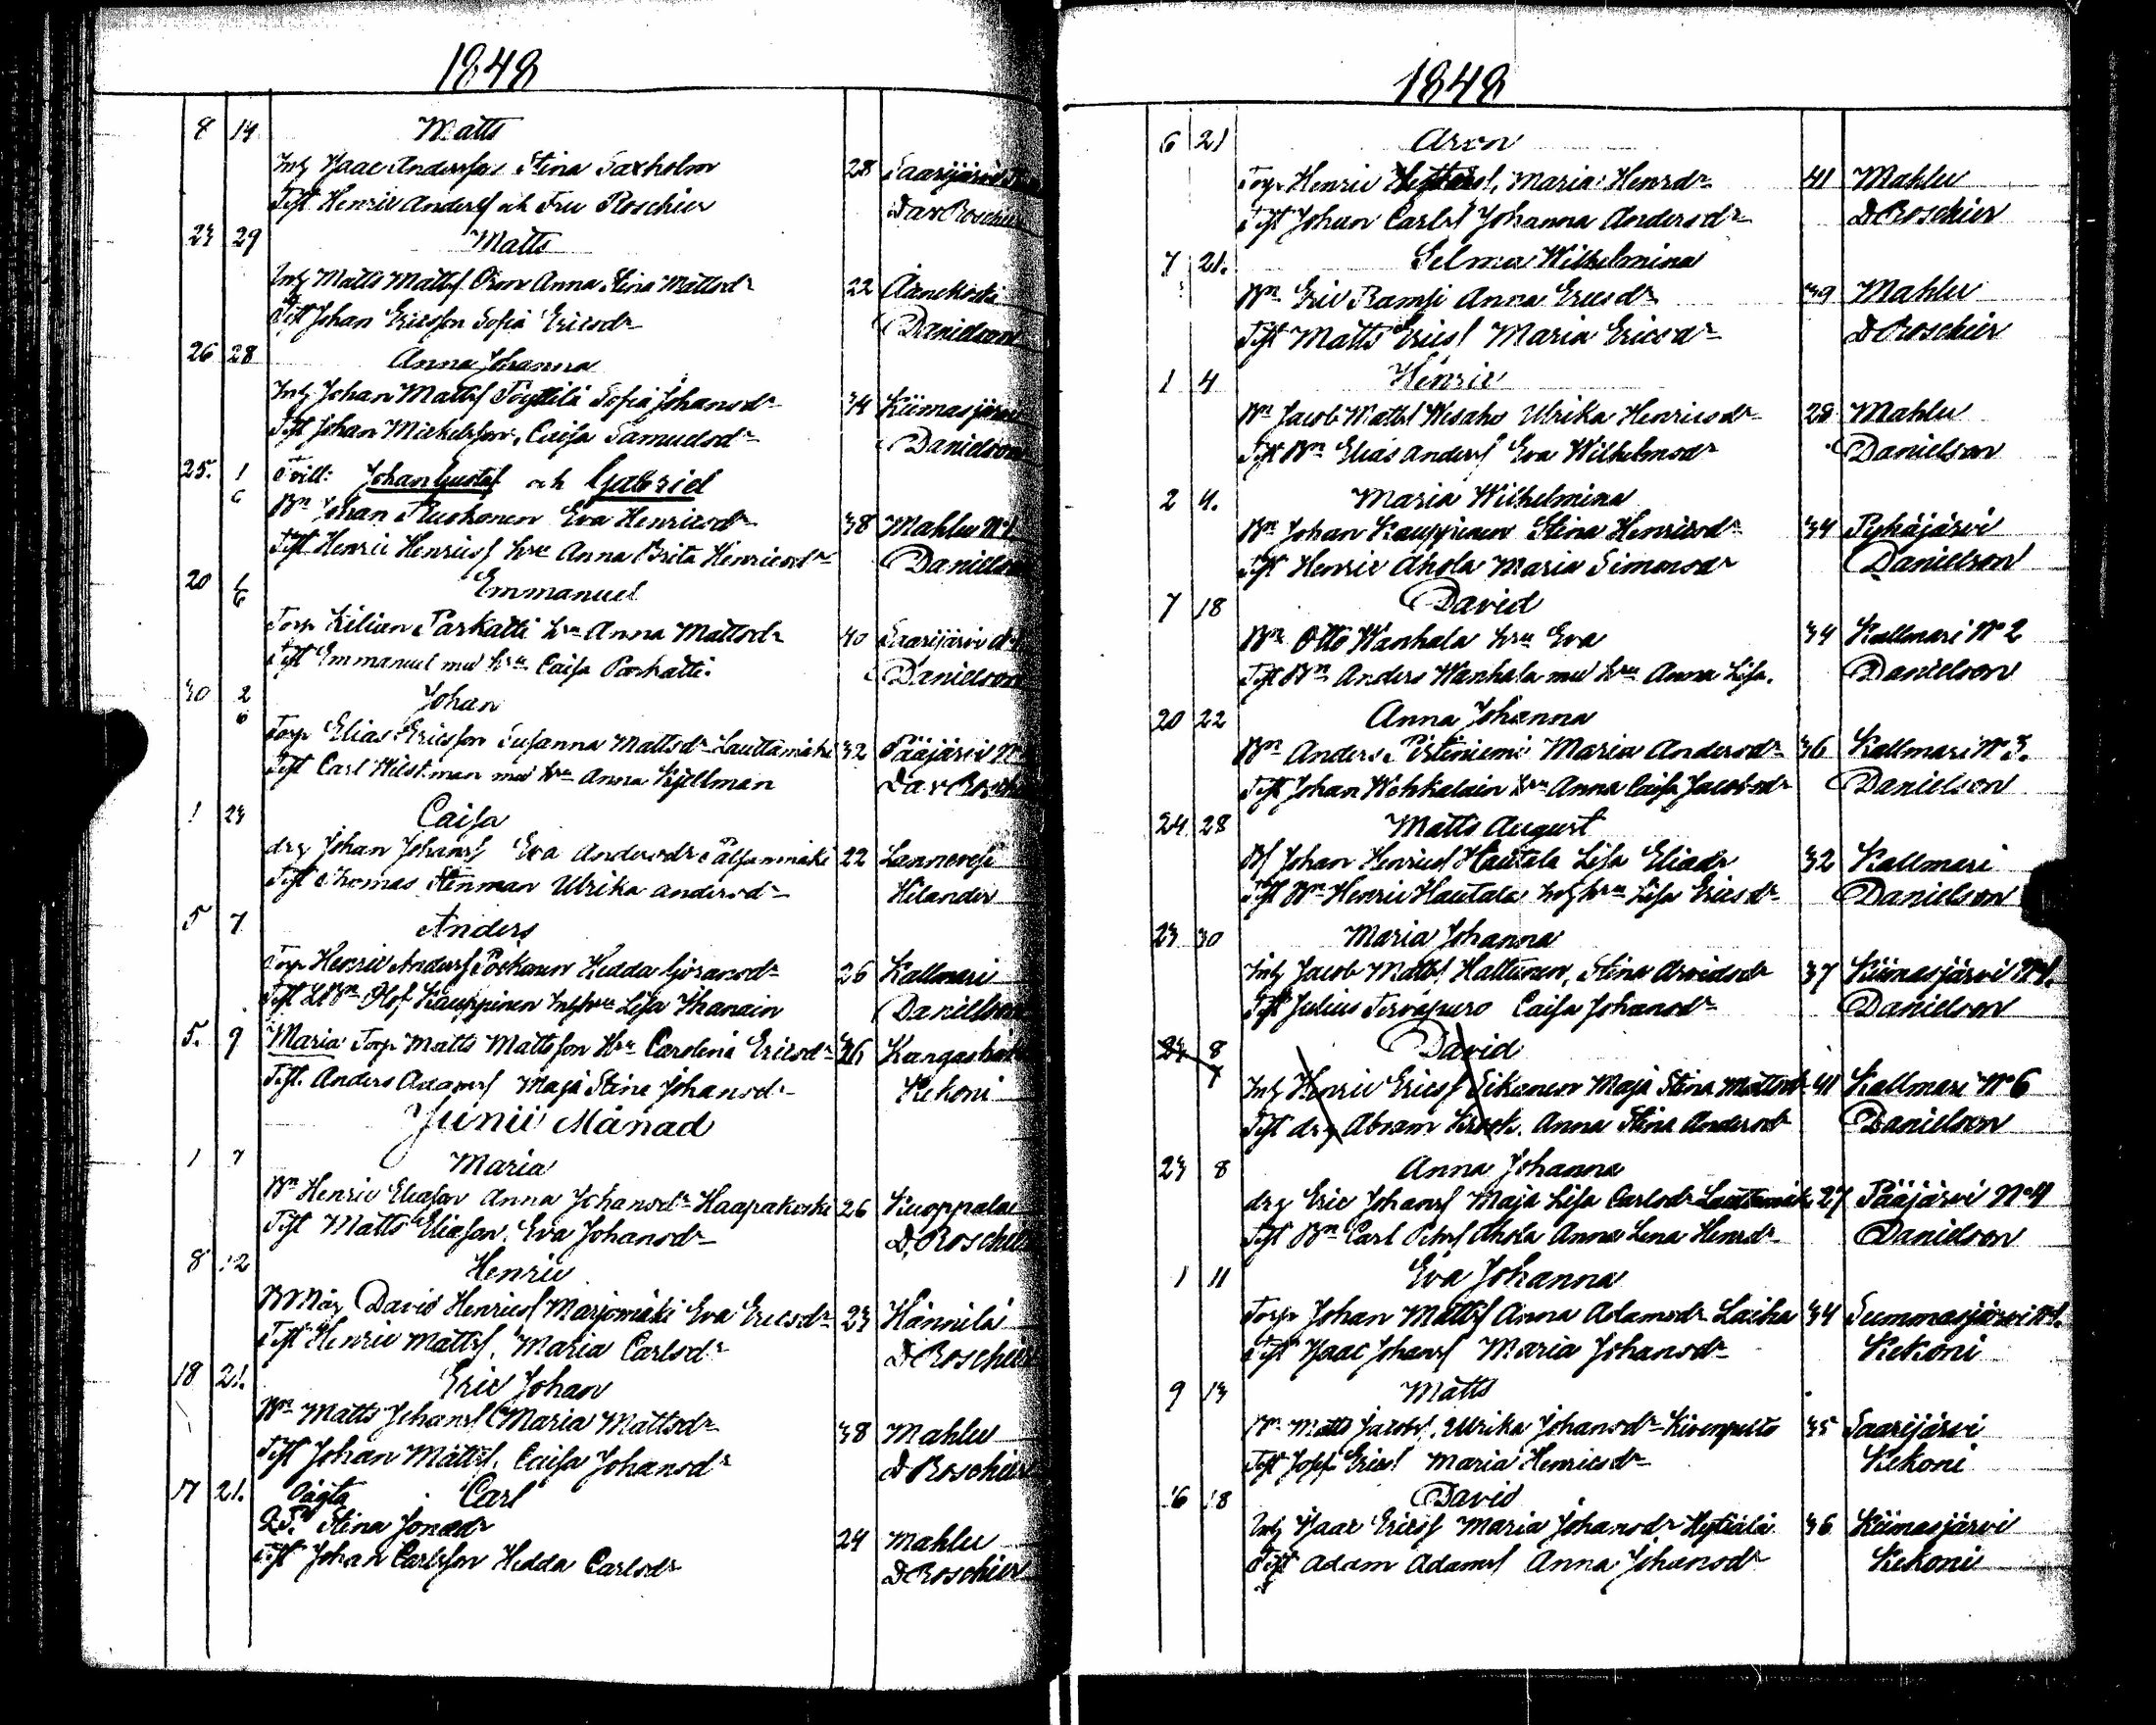 1848
8 14 Matts
Inh Isaac Andersson Stina Saxholm 28 Saarijärvi
Test Henric Anderss och Fru Roschier Dav Roschier
23 29 Matts
Inh Matts Mattss Anna Stina Mattsdr 22 Äänekoski
Test Johan Ericsson Sofia Ericsdr Danielson
26 28 Anna Johanna
Inh Johan Mattss Töyttilä Sofia Johansdr 34 Kiimasjärvi
Test Johan Mickelsson, Caisa Samuelsdr Danielson
25. 1/6 Tvill: Johan Gustaf och Gabriel
Bn Johan Ruokonen Eva Henricsdr 38 Mahlu No 1.
Test Henric Henricss hru Anna Brita Henricsdr Danielson
20 1/6 Emmanuel
Torp Kilian Parkatti hru Anna Mattsdr 40 Saarijärvi
Test Emmanuel med hru Caisa Parkatti. Danielson
30 2/6 Johan
Torp Elias Ericsson Susanna Mattsdr Lauttamäki 32 Pääjärvi No
Test Carl Hilstman med hru Anna Kjellman Dav Roschier
1 23 Caisa
drg Johan Johanss Eva Andersdr Palsanmäki 22 Lannevesi
Test Thomas Stenman Ulrika Andersdr Kilander
5 7 Anders
Torp Henric Anderss Pöckänen Hedda Göransdr 26 Kallmari
Test Olof Kauppinen Lisa Danielson
5. 9 Maria Torp Matts Mattsson Hru Carolina Ericsdr 26 Kangashäkki
Test. Anders Adamss Maja Stina Johansdr Kekoni
Junii Månad
1 7 Maria
Bn Henric Eliasson Anna Johansdr Haapakoski 26 Kuoppala
Test Matts Eliasson, Eva Johansdr D. Roschier
8 12 Henric
BMåg David Henricss Marjomäki Eva Ericsdr 23 Hännilä
Test Henric Mattss, Maria Carlsdr D Roschier
18 21. Eric Johan
Bn Matts Johanss Maria Mattsdr 38 Mahlu
Test Johan Mattss, Caisa Johansdr D Roschier
17 21. Oägta Carl
Q.P. Stina Jonædr 24 Mahlu
Test Johan Carlsson Hedda Carlsdr D Roschier
1848
6 21 Aron
Torp Henric Maria Henrdr 41 Mahlu
Test Johan Carlss Johanna Andersdr D Roschier
7 21. Selma Wilhelmina
Bn Eric Ramsi Anna Ericsdr 39 Mahlu
Test Matts Ericss Maria Ericsdr D Roschier
1 4 Henric
Bn Jacob Mattss Wesaho Ulrika Henricsdr 28 Mahlu
Test Bn Elias Anderss Eva Wilhelmsdr Danielson
2 4. Maria Wilhelmina
Bn Johan Kauppinen Stina Henricsdr 34 Pyhäjärvi
Test Henric Ahola Maria Simonsdr Danielson
7 18 David
Bn Otto Wanhala hru Eva 34 Kallmari No 2
Test Bn Anders Wanhala med hru Anna Lisa. Danielson
20 22 Anna Johanna
Bn Anders Pirttiniemi Maria Andersdr 36 Kallmari No 3.
Test Johan Wehkalain hru Anna Caisa Jacobsdr Danielson
24 28 Matts August
Bs Johan Henricss Hautala Lisa Eliædr 32 Kallmari
Test Bn Henric Hautala Lisa Ericsdr Danielson
23 30 Maria Johanna
Inh Jacob Mattss Halttunen, Stina Arvidsdr 37 Kiimasjärvi No 1.
Test Julius Tervapuro Caisa Johansdr Danielson
23 8/7 David
Inh Henric Ericss Sikanen Maja Stina Mattsdr 41 Kallmari No 6
Test drg Abram Krook. Anna Stina Andersdr Danielson
23 8 Anna Johanna
drg Eric Johanss Maja Lisa Carlsdr Lauttamäki 27 Pääjärvi No 4
Test Bn Carl Petrss Ahola Anna Lena Henrdr Danielson
1 11 Eva Johanna
Torp Johan Mattss Anna Adamsdr Laiha 34 Summasjärvi No 1.
Test Isaac Johanss Maria Johansdr Kekoni
9 13 Matts
Bn Matts Jacobss. Ulrika Johansdr Kivenpelto 35 Saarijärvi
Test Josef Ericss Maria Henricsdr Kekoni
16 18 David
Inh Isaac Ericss Maria Johansdr Hytiälä 36 Kiimasjärvi
Test Adam Adamss Anna Johansdr Kekoni